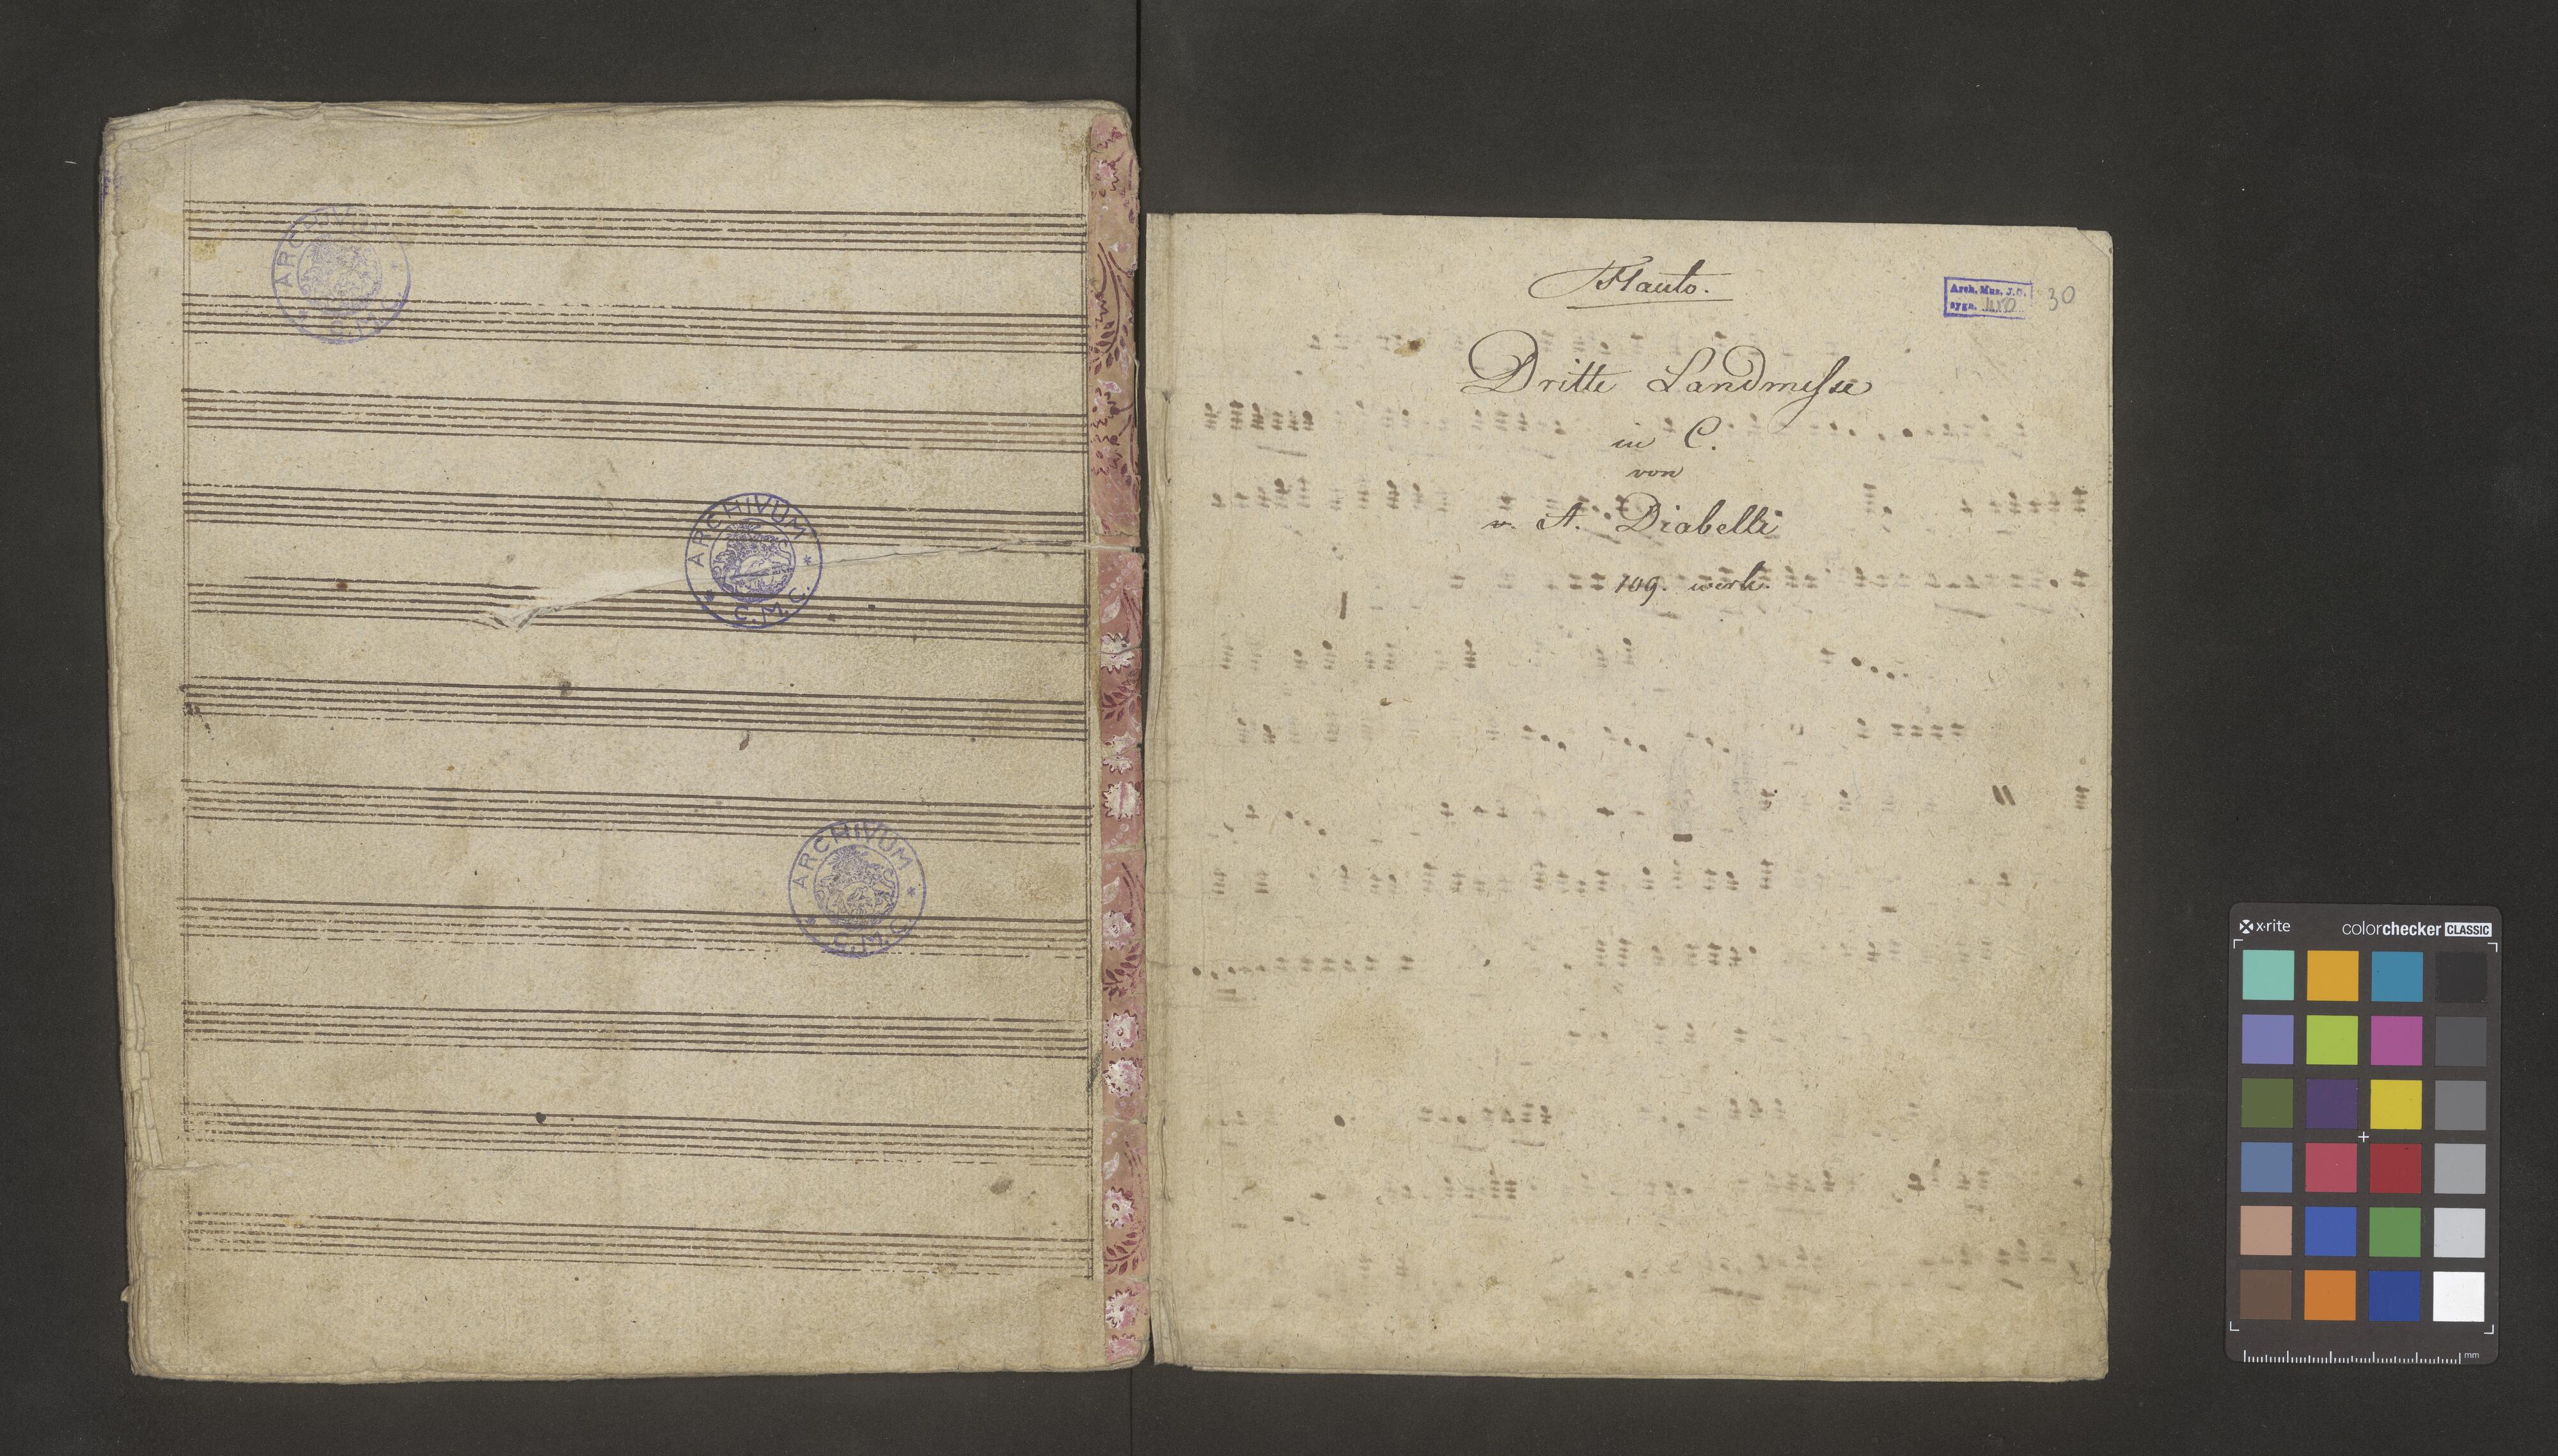 ARCHIVUM
C.M.C.
ARCHIVUM
C.M.C.
ARCHIVUM
C.M.C.
Flauto.
Arch. Muz. J.G.
sygn. 30
Dritte Landmesse
in C.
von
v. A. Diabelli
109. werk.
x-rite colorchecker CLASSIC
mm